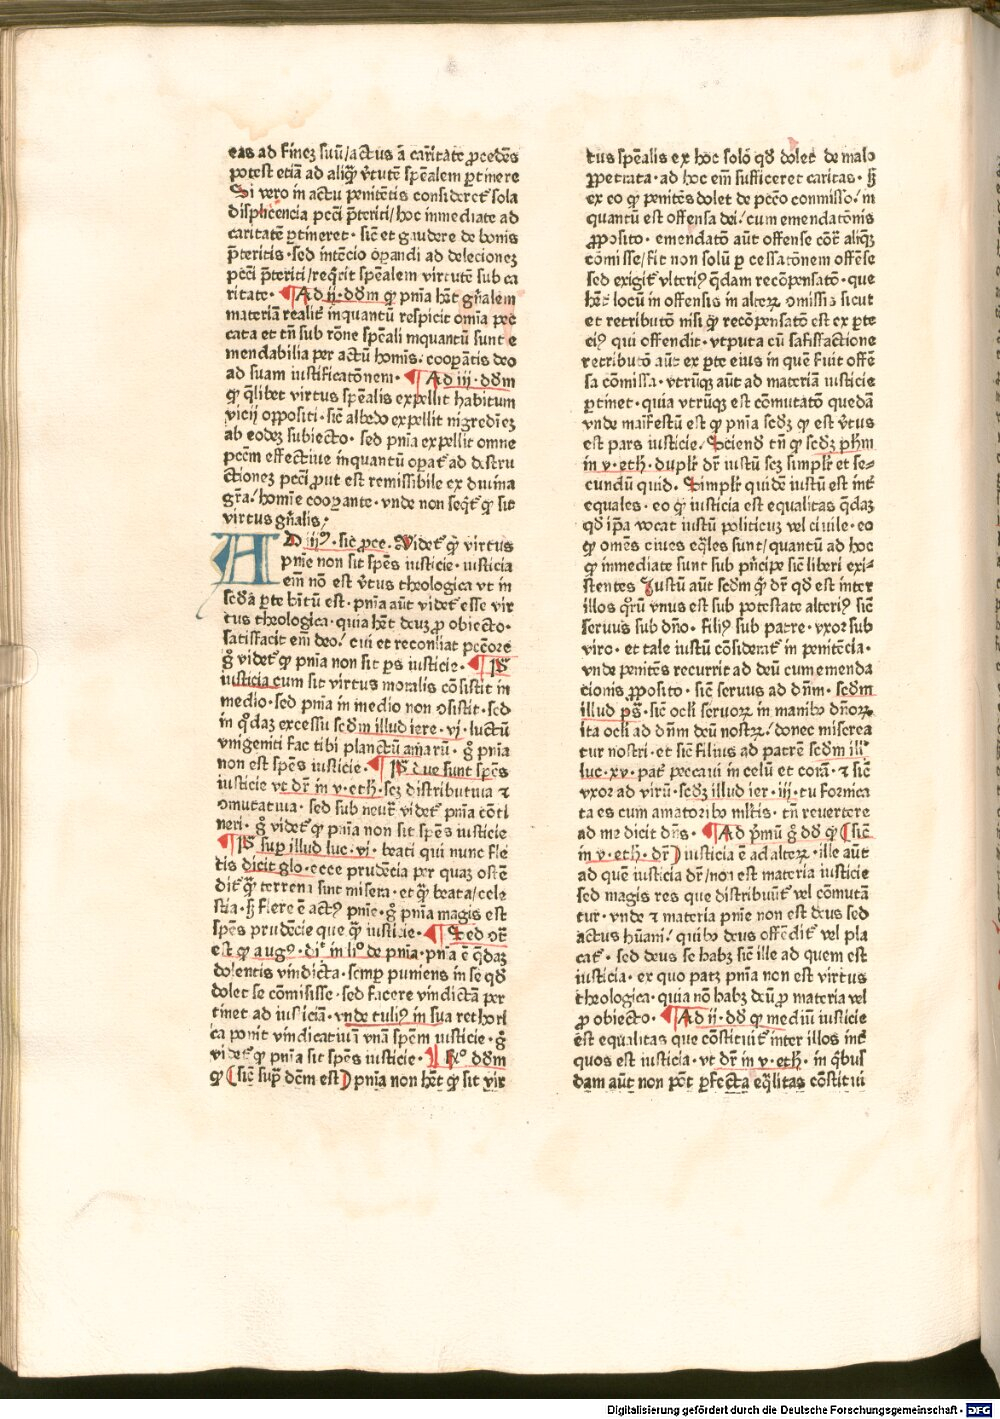 eas ad finez suū/actus ā caritate ꝓcedēs
potest etiā ad aliqꝫ ꝟtutē spēalem ꝑtinere
Si vero in actu penitētis consideret᷑ sola
displicencia pccī p̄teriti/hoc inmediate ad
caritatē ꝑtineret · sic̄ et gaudere de bonis
p̄teritis · sed intēcio oꝑandi ad delecionez
pccī p̄teriti/req̄rit spēalem virtutē sub ca
ritate · Ad ij · dōm ꝙ pn̄ia hēt gn̄alem
materiā realit᷑ inquantū respicit om̄ia pec
cata et tn̄ sub rōne spēali inquantū sunt e
mendabilia per actū homīs · cooꝑantis deo
ad suam iustificatōnem · Ad iij · dōm
ꝙ q̄libet virtus spēalis expellit habitum
vicij oppositi · sic̄ albedo expellit nigredīez
ab eodez subiecto · sed pn̄ia expellit omne
pccm̄ effectiue inquantū oꝑat᷑ ad destru
ctionez pccī ꝓut est remissibile ex diuina
gr̄a/ homīe cooꝑante · vnde non seqt᷑ ꝙ sit
virtus gn̄alis/
AD iijꝰ · sic̄ ꝓce · Videt᷑ ꝙ virtus
pn̄ie non sit spēs iusticie · iusticia
em̄ nō est ꝟtus theologica vt in
scd̄a ꝑte hītū est · pn̄ia aūt videt᷑ esse vir
tus theologica · quia hēt deuz ꝓ obiecto ·
satisfacit em̄ deo/ cui et reconsiat pccōrē
gͦ videt᷑ ꝙ pn̄ia non sit ps iusticie · Pͣ
iusticia cum sit virtus moralis cōsistit in
medio · sed pn̄ia in medio non ꝯsistit · sed
in qͦdaz excessu scd̄m illud iere · vj · luctū
vnigeniti fac tibi planctū amarū · gͦ pn̄ia
non est spēs iusticie · Pͣ due sunt spēs
iusticie vt dr̄ in v · eth · scz distributiua ⁊
ꝯmutatiua · sed sub neutͣ videt᷑ pn̄ia cōti
neri · gͦ videt᷑ ꝙ pn̄ia non sit spēs iusticie
Pͣ suꝑ illud luc · vj · beati qui nunc fle
tis dicit glo · ecce prudēcia per quaz ostē
dit᷑ qͣꝫ terreni sint misera · et qͣꝫ beata/cele
stia · sꝫ flere ē actꝰ pn̄ie · gͦ pn̄ia magis est
spēs prudēcie que qͣꝫ iusticie · Sed ꝯt̄
est ꝙ augꝰ · di᷑ in liͦ de pn̄ia · pn̄ia ē q̄daz
dolentis vindicta · semꝑ puniens in se qd̄
dolet se cōmisisse · sed facere vindictā per
tinet ad iusticiā · vnde tuliꝰ in sua rethori
ca ponit vindicatiuā vnā spēm iusticie · gͦ
videt᷑ ꝙ pn̄ia sit spēs iusticie · Rͦ dōm
ꝙ (sic̄ supͣ dēm est) pn̄ia non hēt ꝙ sit vir
tus spēalis ex hoc solo qd̄ dolet de malo
ꝑpetrata · ad hoc em̄ sufficeret caritas · sꝫ
ex eo ꝙ penitēs dolet de pccō conmisso/ in
quantū est offensa dei/ cum emendatōnis
ꝓposito · emendatō aūt offense cōt᷑ aliqꝫ
cōmisse/fit non solū ꝑ cessatōnem offēse
sed exigit᷑ vlteriꝰ q̄dam recōpensatō · que
hēt locū in offensis in alteꝝ ꝯmissis sicut
et retributō nisi ꝙ recōpensatō est ex ꝑte
eiꝰ qui offendit · vtputa cū satisfactione
retributō aūt ex ꝑte eius in quē fuit offē
sa cōmissa · vtrūqꝫ aūt ad materiā iusticie
ꝑtinet · quia vtrūqꝫ est cōmutatō quedā
vnde maīfestū est ꝙ pn̄ia scd̄z ꝙ est ꝟtus
est pars iusticie/ Sciend̄ tn̄ ꝙ scd̄z ph̄m
in v · eth · duplr̄ dr̄ iustū scz simplr̄ et se-
cundū quid · Simplr̄ quidē iustū est int᷑
equales · eo ꝙ iusticia est equalitas q̄daz
qd̄ ip̄a vocat iustū politicuz vel ciuile · eo
ꝙ omēs ciues eq̄les sunt/quantū ad hoc
ꝙ inmediate sunt sub pn̄cipe sic̄ liberi exi-
stentes Justū aūt scd̄m ꝙ dr̄ qd̄ est inter
illos qͦrū vnus est sub potestate alteriꝰ sic̄
seruus sub dn̄o · filiꝰ sub patre · vxor sub
viro · et tale iustū cōsiderat᷑ in penitēcia ·
vnde penitēs recurrit ad deū cum emenda
tionis ꝓposito · sic̄ seruus ad dn̄m · scd̄m
illud ps̄ · sic̄ ocli seruoꝝ in manibꝰ dn̄oꝝ
ita ocli ad dn̄m deū nostꝝ/ donec miserea
tur nostri · et sic̄ filius ad patrē scd̄m ill᷑
luc · xv · pat᷑ peccaui in celū et corā · ⁊ sic̄
vxor ad virū · scd̄z illud ier · iij · tu fornica
ta es cum amatoribꝰ mltis · tn̄ reuertere
ad me dicit dn̄s · Ad pͥmū gͦ dō ꝙ (sic̄
in v · eth · dr̄) iusticia ē ad alteꝝ · ille aūt
ad quē iusticia dr̄/non est materia iusticie
sed magis res que distribuūt᷑ vel cōmutā
tur · vnde ⁊ materia pn̄ie non est deus sed
actus hūani/ quibꝰ deus offēdit᷑ vel pla
cat᷑ · sed deus se habꝫ sic̄ ille ad quem est
iusticia · ex quo patꝫ pn̄ia non est virtus
theologica · quia nō habꝫ deū ꝓ materia vel
ꝓ obiecto · Ad ij · dō ꝙ mediū iusticie
est equalitas que cōstituit᷑ inter illos int᷑
quos est iusticia · vt dr̄ in v · eth · in qͥbus
dam aūt non pōt ꝑfecta eq̄litas cōstitui
Digitalisierung gefördert durch die Deutsche Forschungsgemeinschaft - DFG